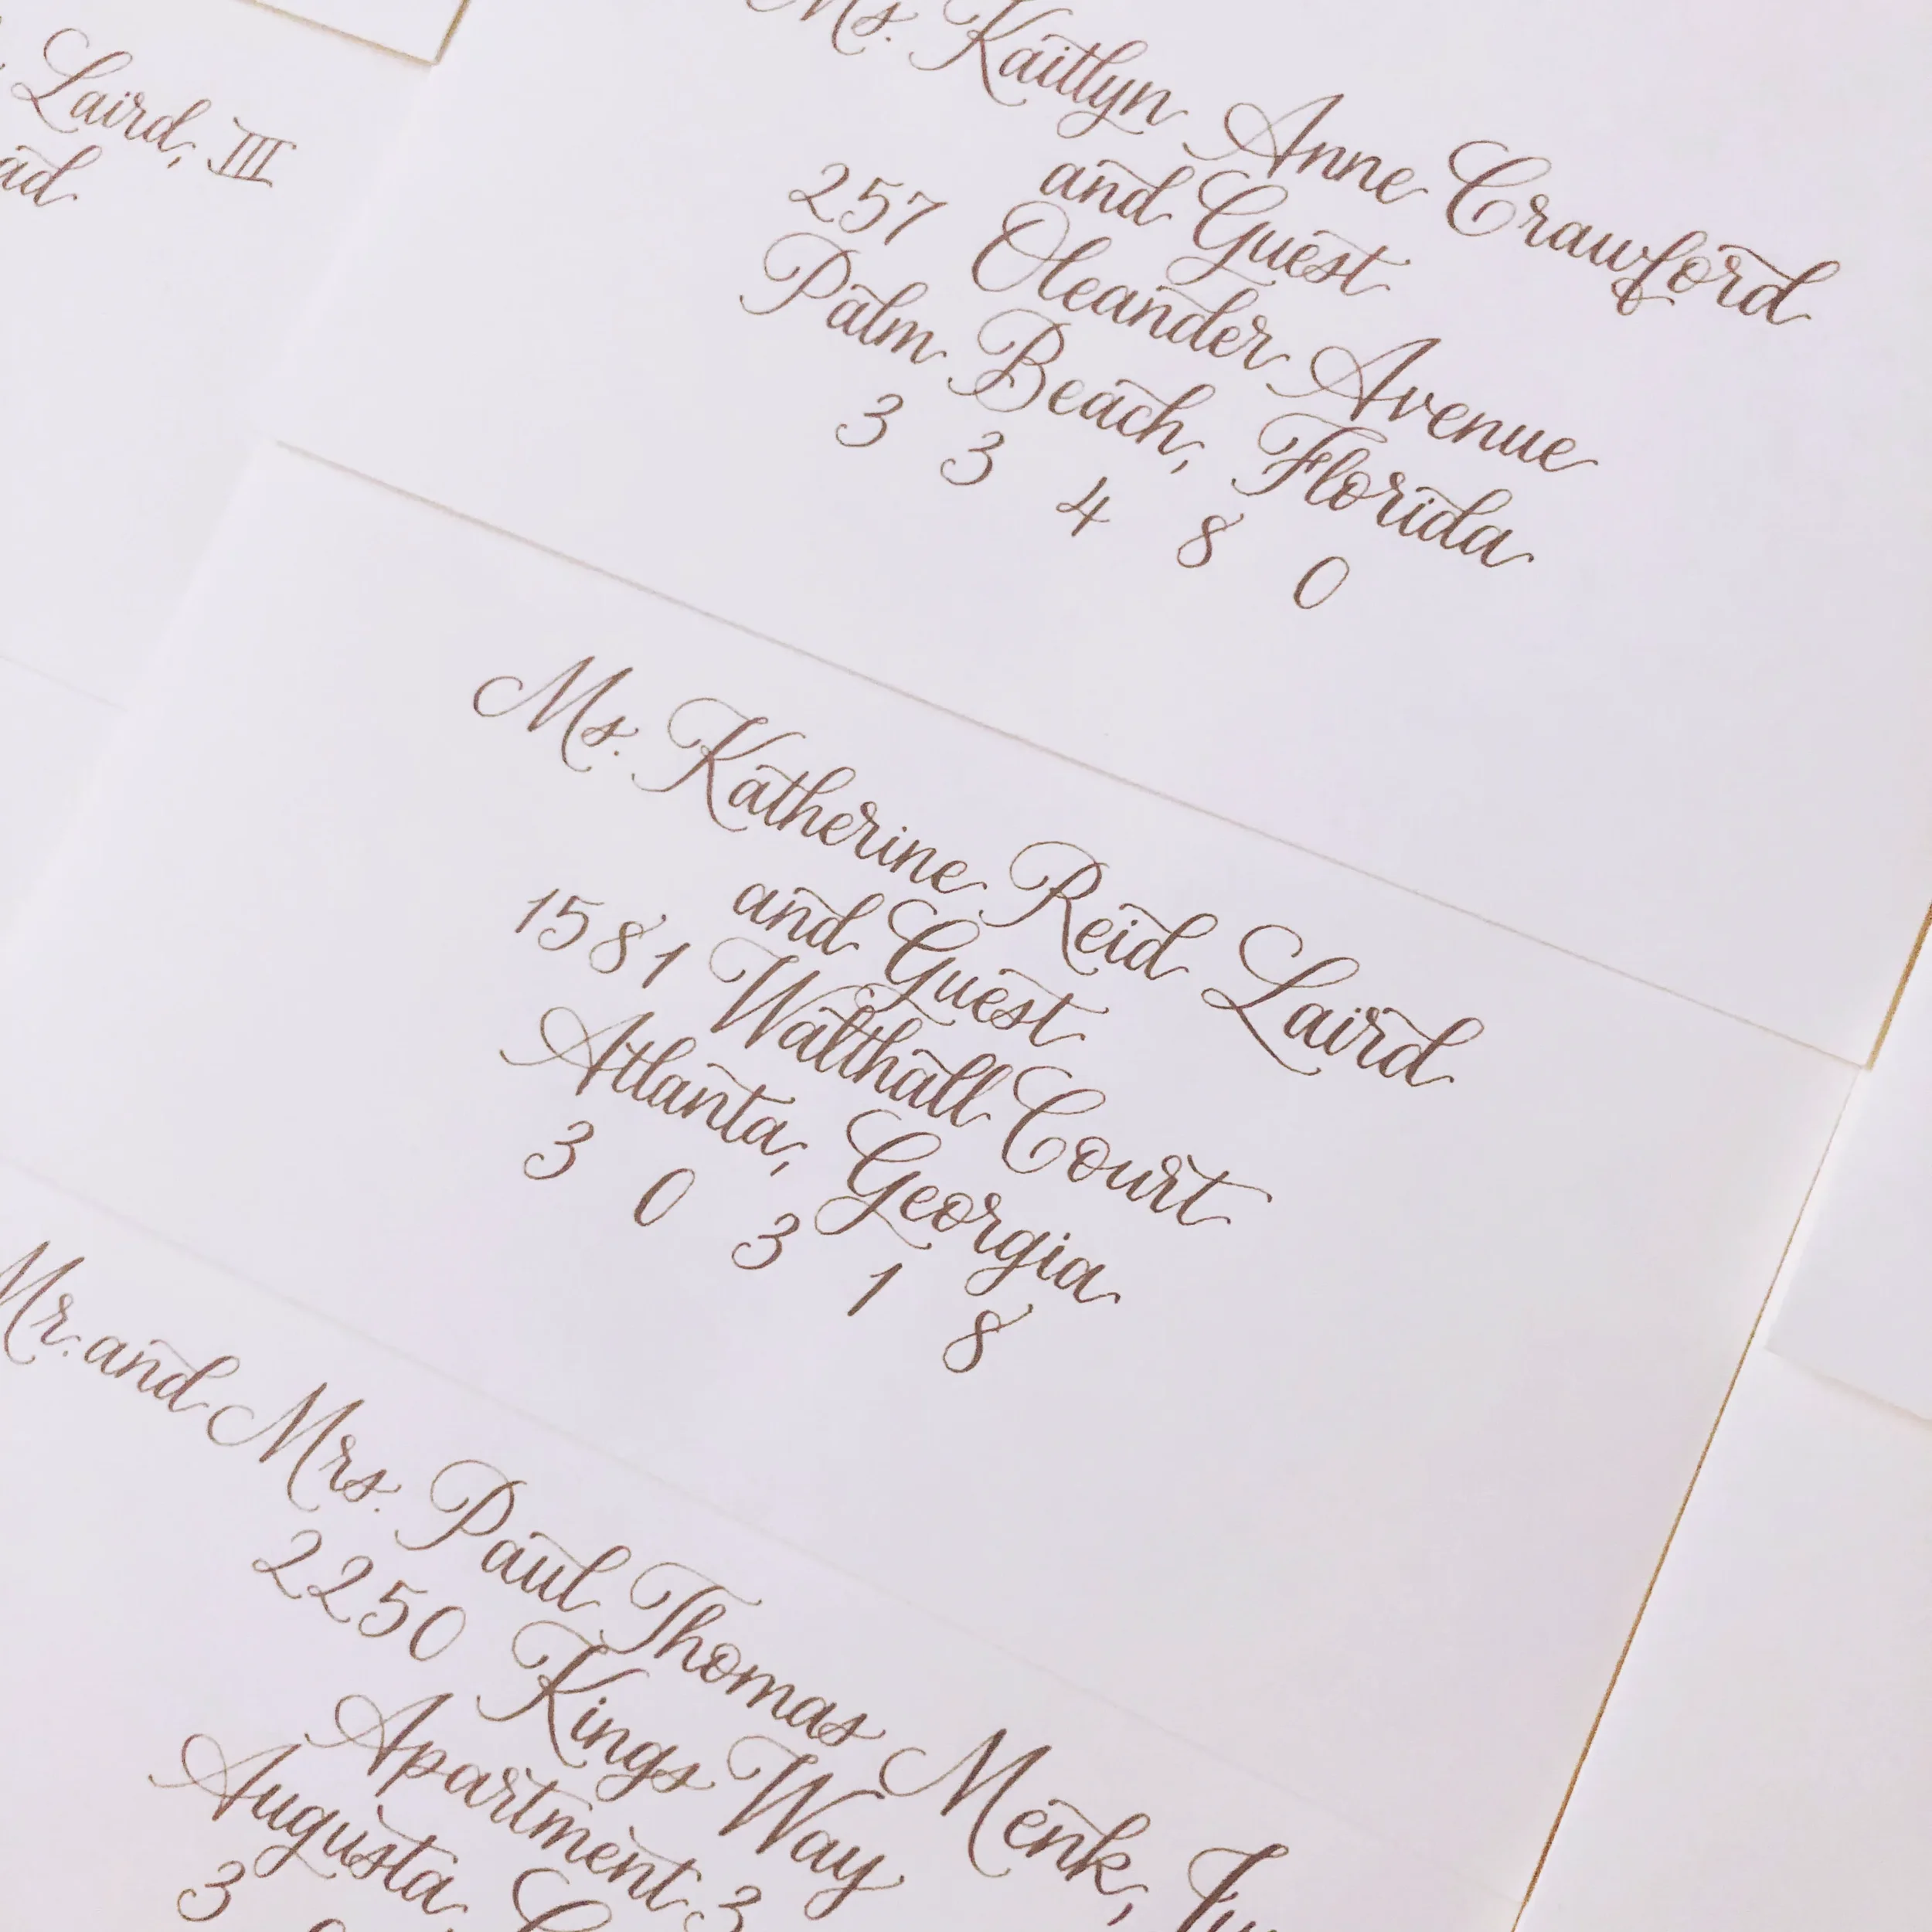 Laird, III
Ms. Kaitlyn Anne Crawford
and Guest
257 Oleander Avenue
Palm Beach, Florida
3 3 4 8 0
Ms. Katherine Reid Laird
and Guest
1581 Walthall Court
Atlanta, Georgia
3 0 3 1 8
Mr. and Mrs. Paul Thomas Menk,
2250 Kings Way
Apartment 3
Augusta,
3